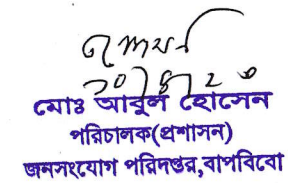 মোঃ আবুল হোসেন
পরিচালক(প্রশাসন)
জনসংযোগ পরিদপ্তর,বাপবিবো